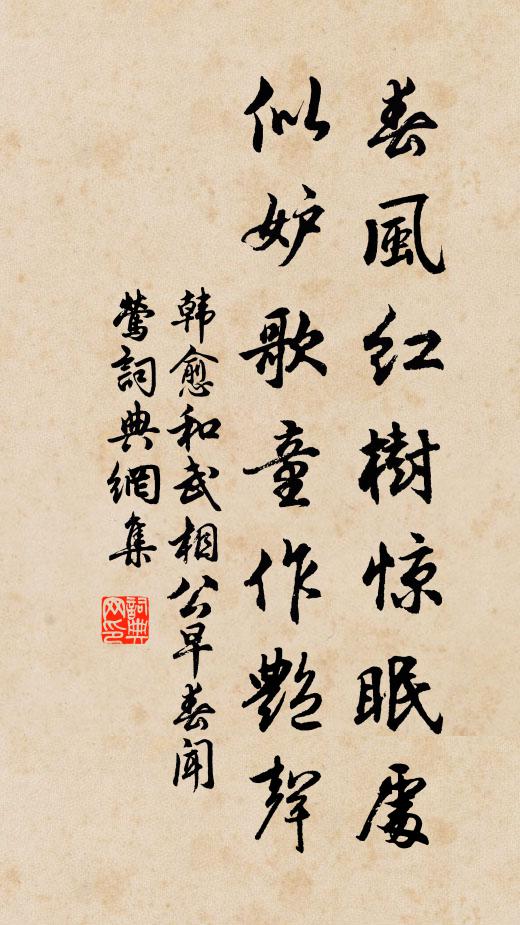 春風紅樹惊眠處
似妒歌童作艶聲
韩愈和武相公早春聞
鶯詞典網集
詞典网印